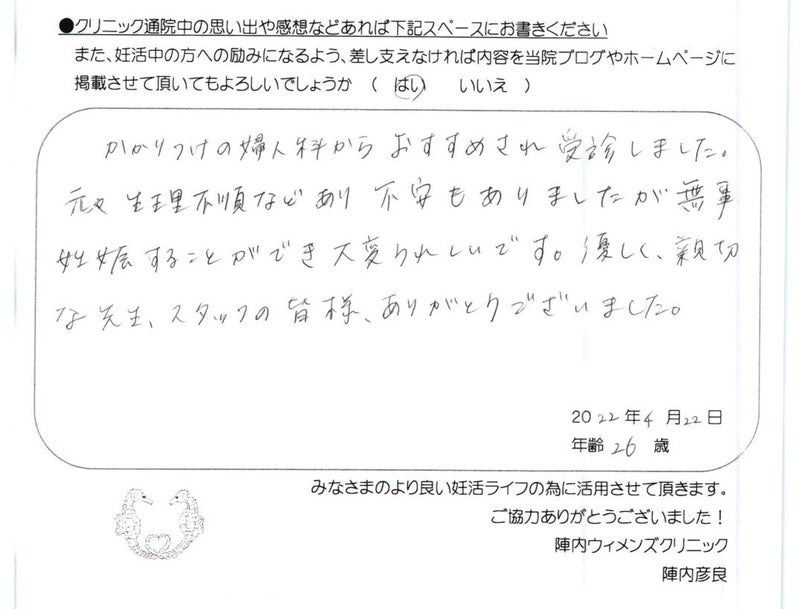 ●クリニック通院中の思い出や感想などあれば下記スペースにお書きください
また、妊活中の方への励みになるよう、差し支えなければ内容を当院ブログやホームページに
掲載させて頂いてもよろしいでしょうか （ はい いいえ ）
かかりつけの婦人科からおすすめされ受診しました。
元々生理不順などあり不安もありましたが無事
妊娠することができ大変うれしいです。優しく、親切
な先生、スタッフの皆様、ありがとうございました。
2022年4月22日
年齢 26 歳
みなさまのより良い妊活ライフの為に活用させて頂きます。
ご協力ありがとうございました！
陣内ウィメンズクリニック
陣内彦良